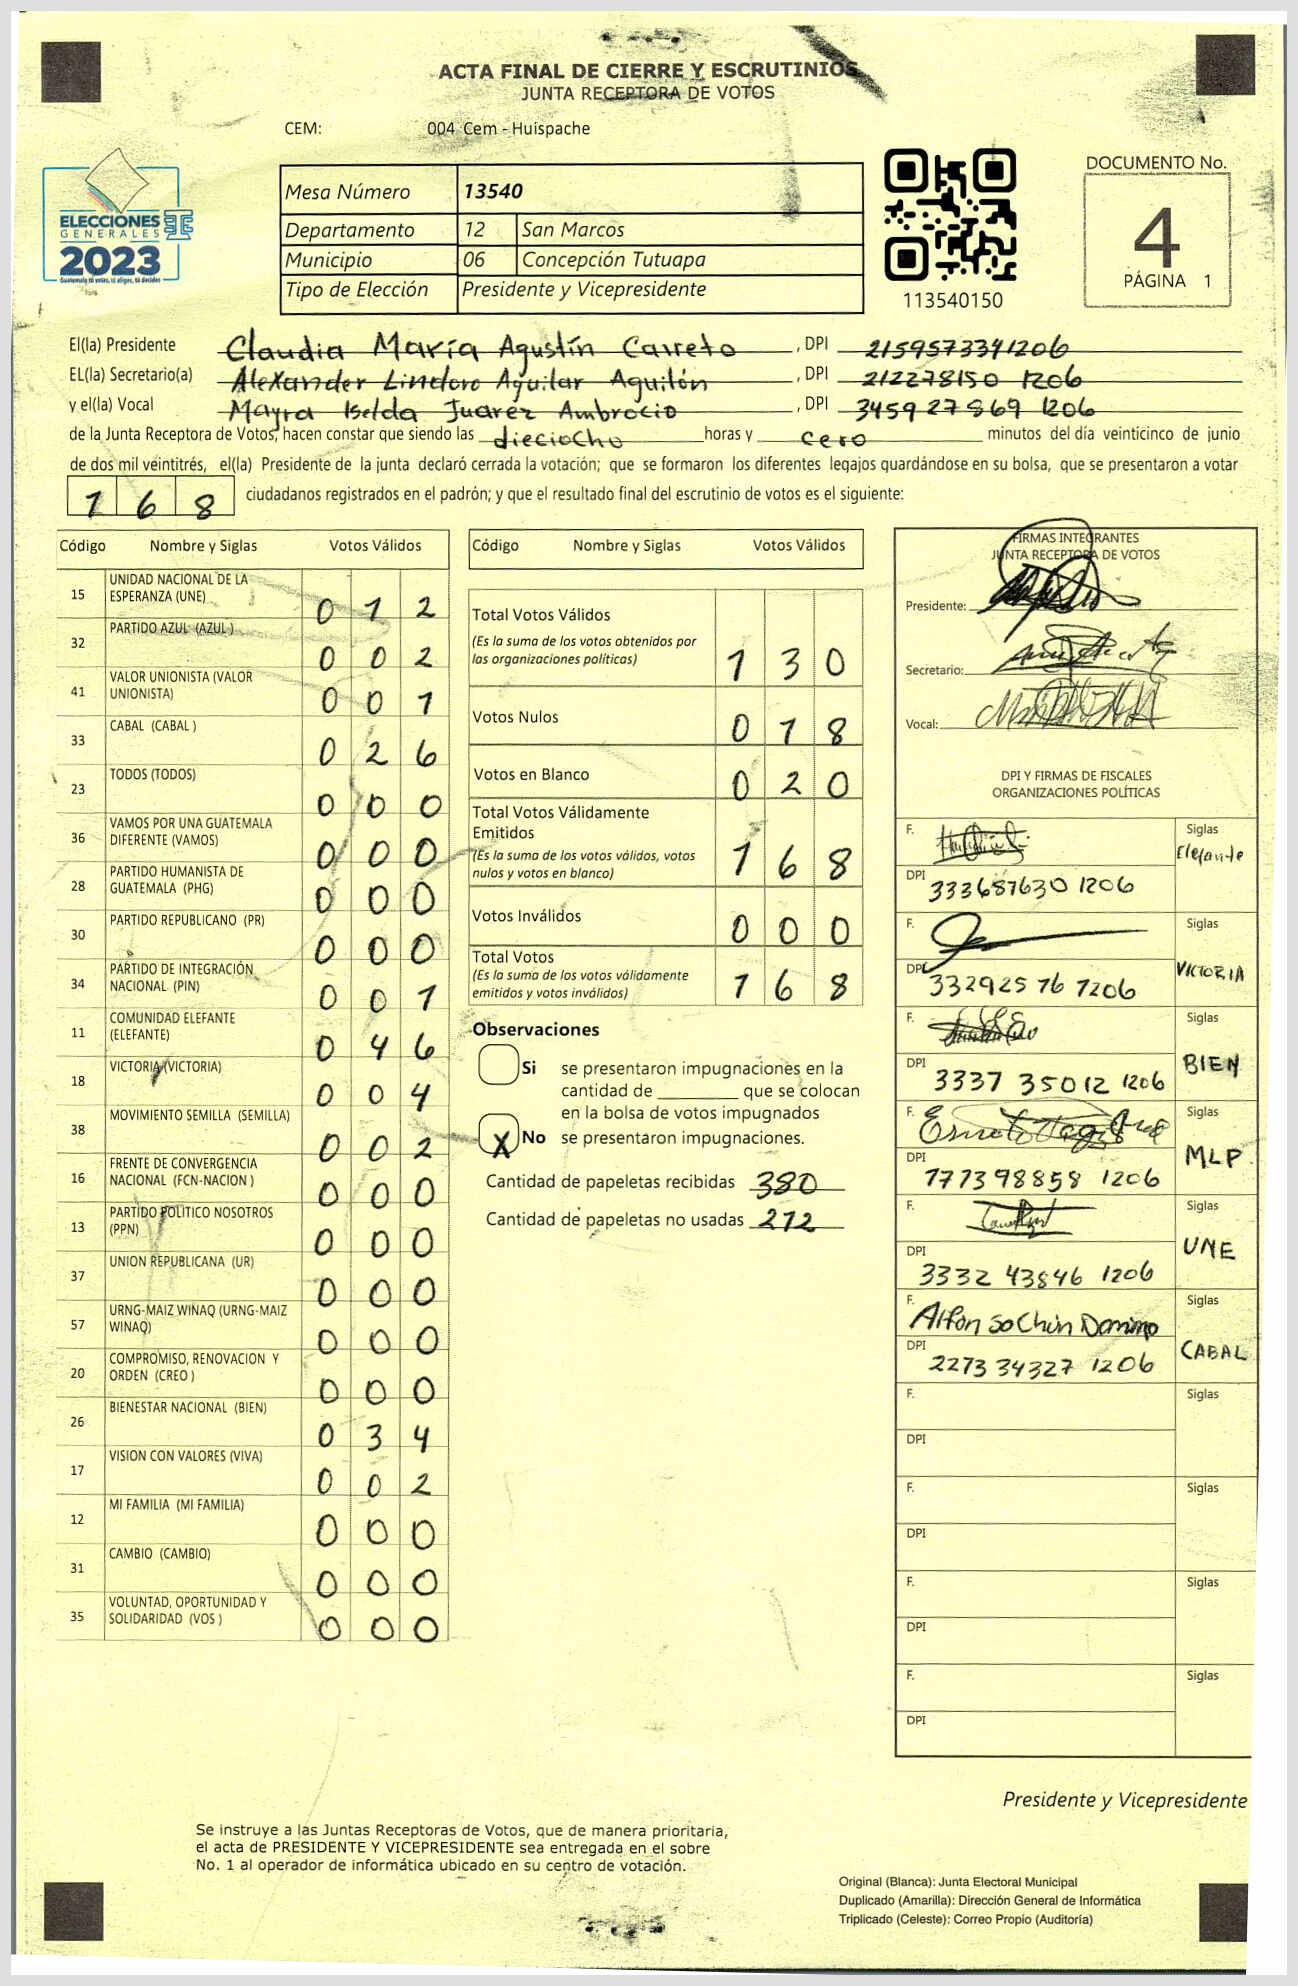 ACTA FINAL DE CIERRE Y ESCRUTINIOS
JUNTA RECEPTORA DE VOTOS
CEM: 004 Cem - Huispache
ELECCIONES
GENERALES
2023
Guatemala tú votas, tú eliges, tú decides
TSE
Mesa Número 13540
Departamento 12 San Marcos
Municipio 06 Concepción Tutuapa
Tipo de Elección Presidente y Vicepresidente
113540150
DOCUMENTO No.
4
PÁGINA 1
El(la) Presidente Claudia María Agustín Carreto , DPI 2159573341206
EL(la) Secretario(a) Alexander Lindoro Aguilar Aguilón , DPI 212278150 1206
y el(la) Vocal Mayra Iselda Juarez Ambrocio , DPI 3459 27869 1206
de la Junta Receptora de Votos, hacen constar que siendo las dieciocho horas y cero minutos del día veinticinco de junio
de dos mil veintitrés, el(la) Presidente de la junta declaró cerrada la votación; que se formaron los diferentes legajos guardándose en su bolsa, que se presentaron a votar
168 ciudadanos registrados en el padrón; y que el resultado final del escrutinio de votos es el siguiente:
Código Nombre y Siglas Votos Válidos
15 UNIDAD NACIONAL DE LA ESPERANZA (UNE) 0 1 2
32 PARTIDO AZUL (AZUL ) 0 0 2
41 VALOR UNIONISTA (VALOR UNIONISTA) 0 0 1
33 CABAL (CABAL ) 0 2 6
23 TODOS (TODOS) 0 0 0
36 VAMOS POR UNA GUATEMALA DIFERENTE (VAMOS) 0 0 0
28 PARTIDO HUMANISTA DE GUATEMALA (PHG) 0 0 0
30 PARTIDO REPUBLICANO (PR) 0 0 0
34 PARTIDO DE INTEGRACIÓN NACIONAL (PIN) 0 0 1
11 COMUNIDAD ELEFANTE (ELEFANTE) 0 4 6
18 VICTORIA (VICTORIA) 0 0 4
38 MOVIMIENTO SEMILLA (SEMILLA) 0 0 2
16 FRENTE DE CONVERGENCIA NACIONAL (FCN-NACION ) 0 0 0
13 PARTIDO POLITICO NOSOTROS (PPN) 0 0 0
37 UNION REPUBLICANA (UR) 0 0 0
57 URNG-MAIZ WINAQ (URNG-MAIZ WINAQ) 0 0 0
20 COMPROMISO, RENOVACION Y ORDEN (CREO ) 0 0 0
26 BIENESTAR NACIONAL (BIEN) 0 3 4
17 VISION CON VALORES (VIVA) 0 0 2
12 MI FAMILIA (MI FAMILIA) 0 0 0
31 CAMBIO (CAMBIO) 0 0 0
35 VOLUNTAD, OPORTUNIDAD Y SOLIDARIDAD (VOS ) 0 0 0
Código Nombre y Siglas Votos Válidos
Total Votos Válidos
(Es la suma de los votos obtenidos por
las organizaciones políticas) 1 3 0
Votos Nulos 0 1 8
Votos en Blanco 0 2 0
Total Votos Válidamente
Emitidos
(Es la suma de los votos válidos, votos
nulos y votos en blanco) 1 6 8
Votos Inválidos 0 0 0
Total Votos
(Es la suma de los votos válidamente
emitidos y votos inválidos) 1 6 8
Observaciones
Si se presentaron impugnaciones en la
cantidad de ________ que se colocan
en la bolsa de votos impugnados
X No se presentaron impugnaciones.
Cantidad de papeletas recibidas 380
Cantidad de papeletas no usadas 212
FIRMAS INTEGRANTES
JUNTA RECEPTORA DE VOTOS
Presidente:
Secretario:
Vocal:
DPI Y FIRMAS DE FISCALES
ORGANIZACIONES POLÍTICAS
F. Siglas
Elefante
DPI 333687630 1206
F. Siglas
VICTORIA
DPI 33292576 1206
F. Siglas
BIEN
DPI 3337 35012 1206
F. Siglas
MLP
DPI 177398858 1206
F. Siglas
UNE
DPI 3332 43846 1206
F. Alfonso Chun Domingo Siglas
CABAL
DPI 2273 34327 1206
F. Siglas
DPI
F. Siglas
DPI
F. Siglas
DPI
F. Siglas
DPI
Presidente y Vicepresidente
Se instruye a las Juntas Receptoras de Votos, que de manera prioritaria,
el acta de PRESIDENTE Y VICEPRESIDENTE sea entregada en el sobre
No. 1 al operador de informática ubicado en su centro de votación.
Original (Blanca): Junta Electoral Municipal
Duplicado (Amarilla): Dirección General de Informática
Triplicado (Celeste): Correo Propio (Auditoría)